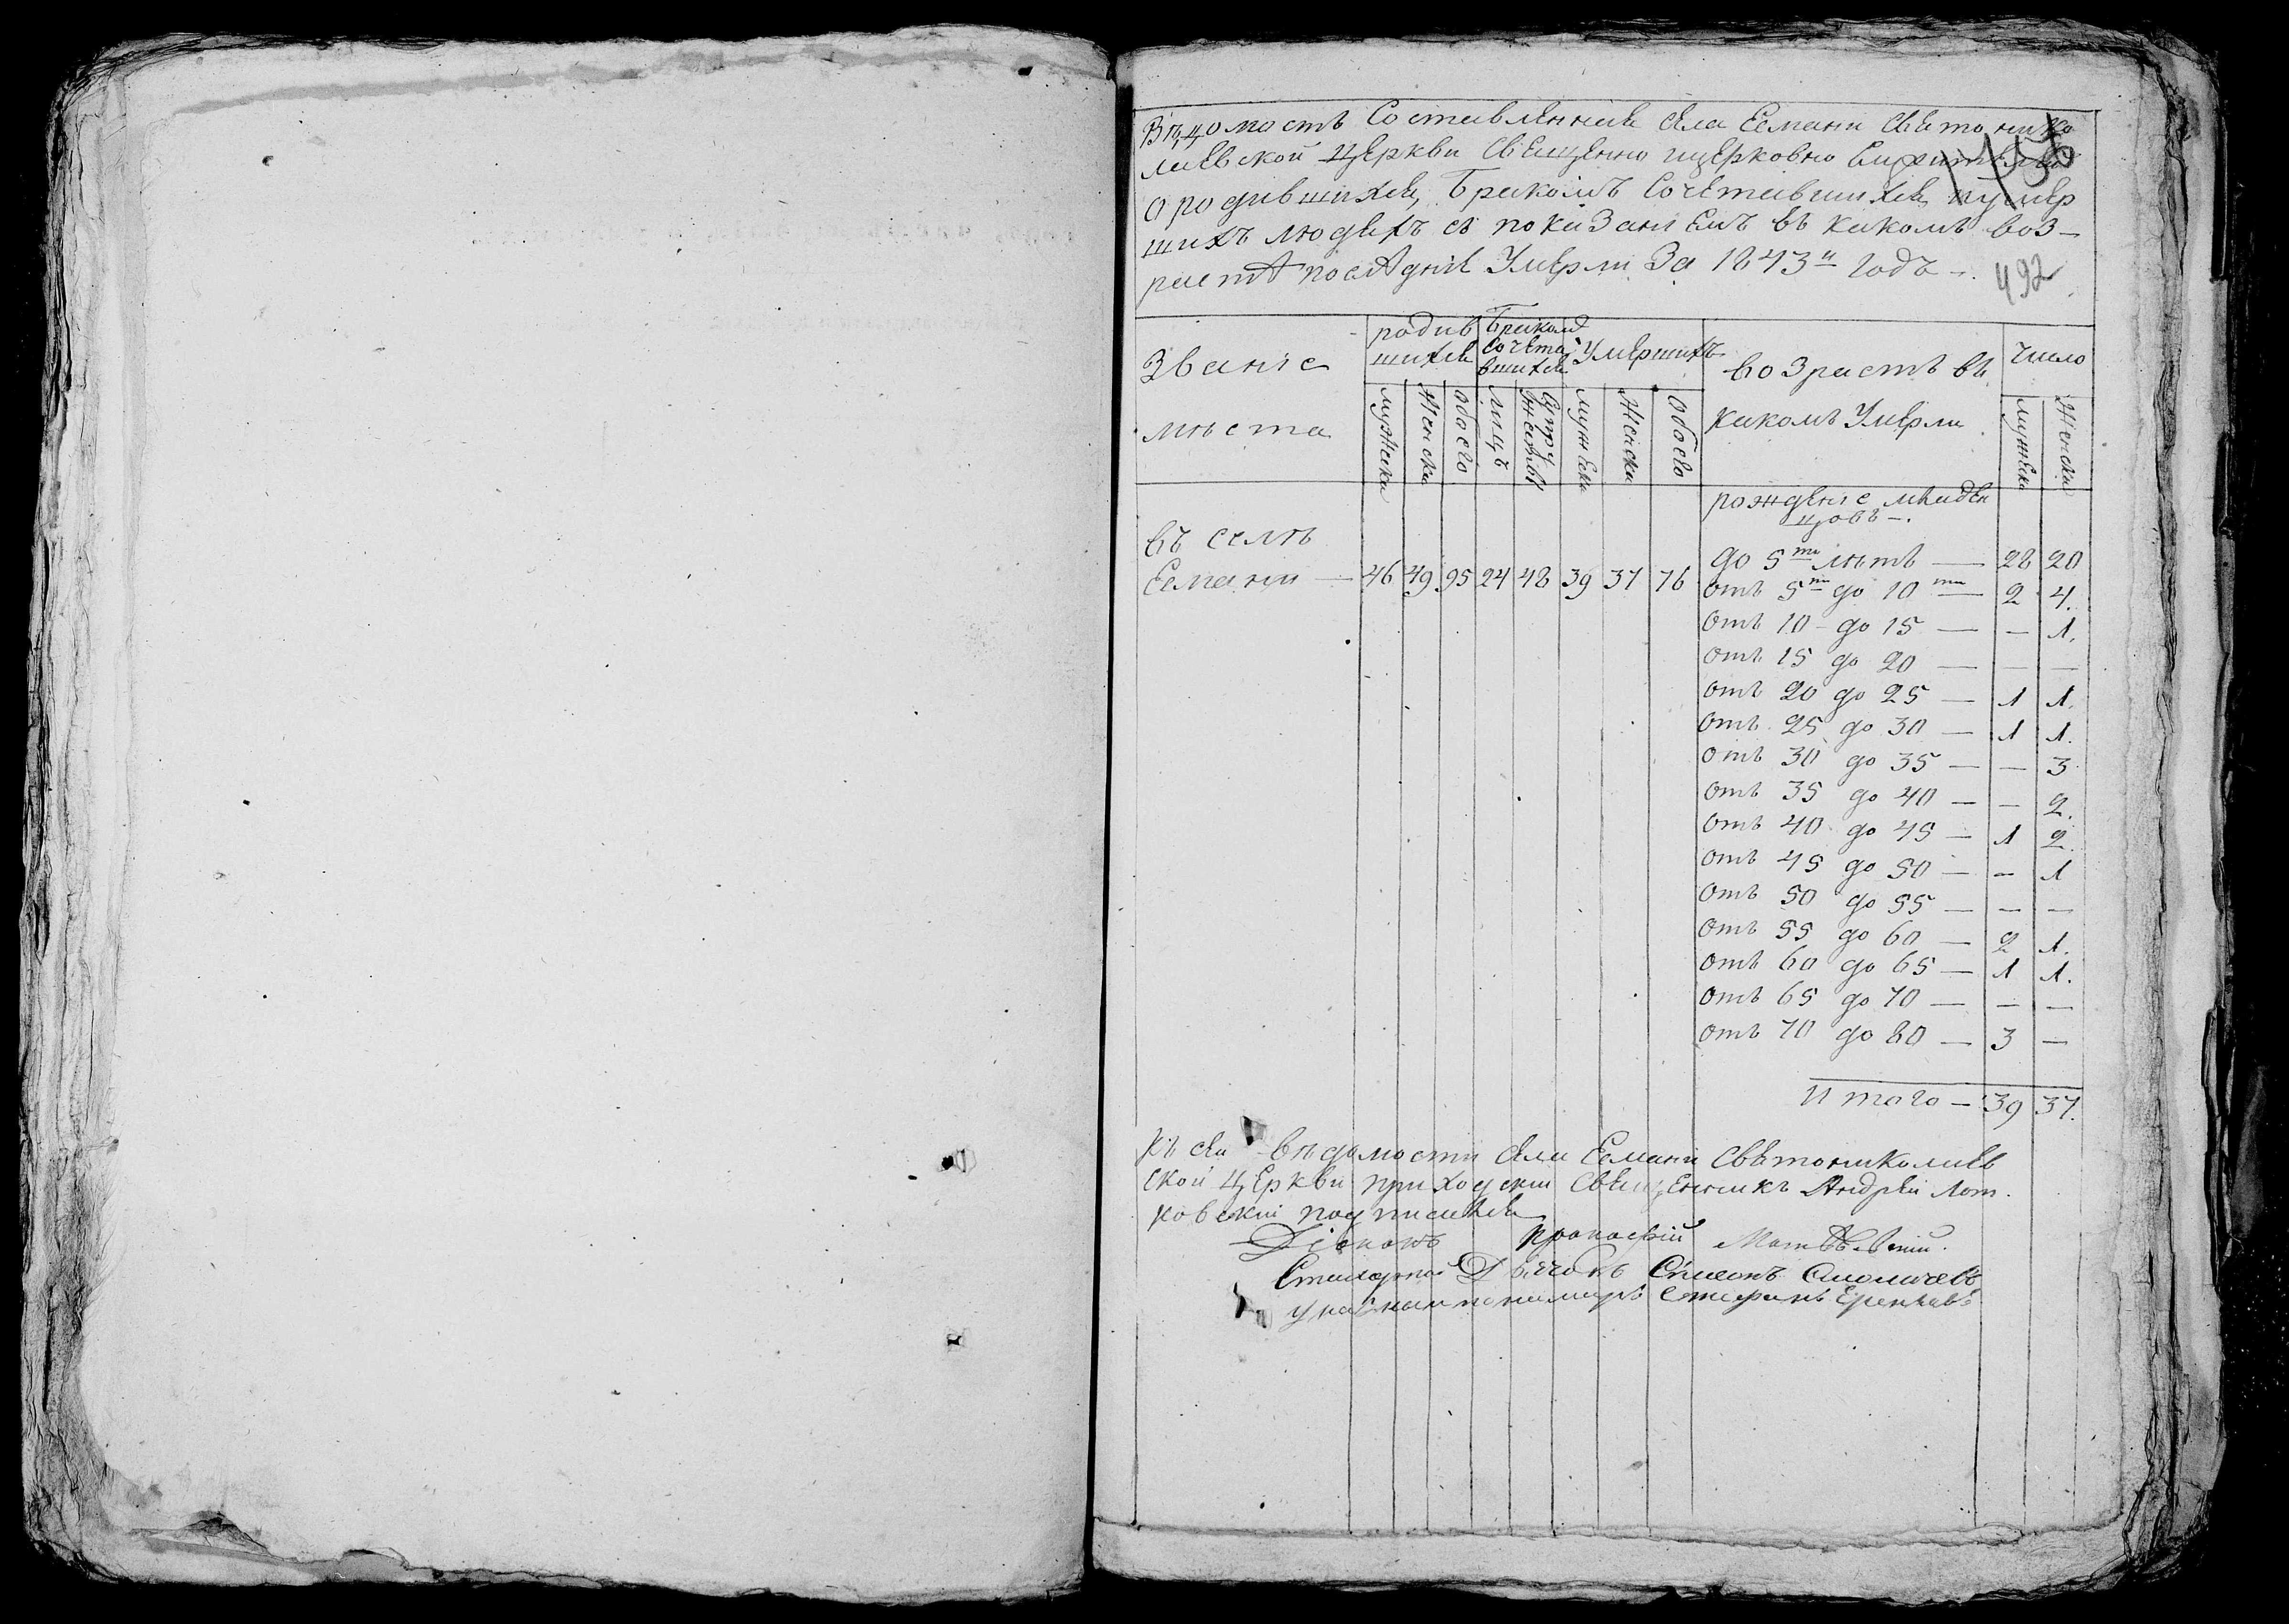 Вѣдомость Составленная села Есмани Свято нико
лаевской церкви Священно ицерковно служительми
о родившихся, бракомъ Сочетавшихся, иумер
шихъ людяхъ съ показаніемъ въ какомъ воз–
растѣ последніе Умерли За 1843й годъ –.
492
Званіе
мѣста
родив
шихся
Бракомъ
Сочета
вшихся
Умершихъ
возрастъ въ
какомъ Умерли
число
мужеска
женска
обоего
лицъ
супружествъ
мужеска
женска
обоего
мужеска
женска
рожденіе младен
цовъ –.
въ селѣ
Есмани — 46 49 95 24 48 39 37 76
до 5ти лѣтъ — 28 20
отъ 5ти до 10ти — 2 4.
отъ 10 до 15 — — 1.
отъ 15 до 20 — — —
отъ 20 до 25 — 1 1.
отъ 25 до 30 — 1 1.
отъ 30 до 35 — — 3
отъ 35 до 40 — — 2.
отъ 40 до 45 — 1 2.
отъ 45 до 50 — — 1
отъ 50 до 55 — — —
отъ 55 до 60 — 2 1.
отъ 60 до 65 — 1 1.
отъ 65 до 70 — — —
отъ 70 до 80 — 3 —
Итого — 39 37.
Къ сей вѣдомости села Есмани Святониколаев
ской церкви приходскій Священникъ Андрей Лот
ковскій подписался
Діаконъ Прокофій
Стихарной Дьячокъ Симеонъ
указный пономарь Стефанъ